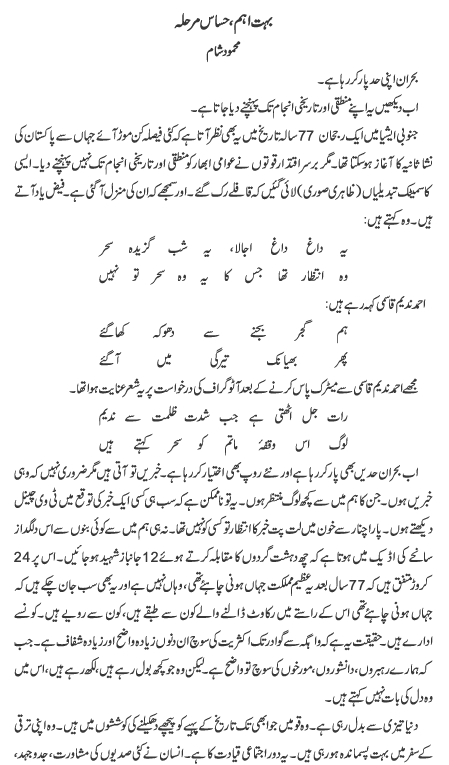 بہت اہم، حساس مرحلہ
محمود شام
بحران اپنی حد پار کر رہا ہے۔
اب دیکھیں یہ اپنے منطقی اور تاریخی انجام تک پہنچنے دیا جاتا ہے۔
جنوبی ایشیا میں ایک رجحان 77 سالہ تاریخ میں یہ بھی نظر آتا ہے کہ کئی فیصلہ کن موڑ آئے جہاں سے پاکستان کی
نشاۃ ثانیہ کا آغاز ہو سکتا تھا۔ مگر برسر اقتدار قوتوں نے عوامی ابھار کو منطقی اور تاریخی انجام تک نہیں پہنچنے دیا۔ ایسی
کاسمیٹک تبدیلیاں (ظاہری صوری) لائی گئیں کہ قافلے رک گئے۔ اور سمجھے کہ ان کی منزل آ گئی ہے۔ فیض یاد آتے
ہیں۔ وہ کہتے ہیں:
یہ داغ داغ اجالا، یہ شب گزیدہ سحر
وہ انتظار تھا جس کا یہ وہ سحر تو نہیں
احمد ندیم قاسمی کہہ رہے ہیں:
ہم گجر بجنے سے دھوکہ کھا گئے
پھر بھیانک تیرگی میں آ گئے
مجھے احمد ندیم قاسمی سے میٹرک پاس کرنے کے بعد آٹو گراف کی درخواست پر یہ شعر عنایت ہوا تھا۔
رات جل اٹھتی ہے جب شدت ظلمت سے ندیم
لوگ اس وقفۂ ماتم کو سحر کہتے ہیں
اب بحران حدیں بھی پار کر رہا ہے اور نئے روپ بھی اختیار کر رہا ہے۔ خبریں تو آتی ہیں مگر ضروری نہیں کہ وہی
خبریں ہوں۔ جن کا ہم میں سے کچھ لوگ منتظر ہوں۔ یہ تو ناممکن ہے کہ سب ہی کسی ایک خبر کی توقع میں ٹی وی چینل
دیکھتے ہوں۔ پارا چنار سے خون میں لت پت خبر کا انتظار تو کسی کو نہیں تھا۔ نہ ہی ہم میں سے کوئی بنوں سے اس دلگداز
سانحے کی اڈیک میں ہوتا ہے کہ چھ دہشت گردوں کا مقابلہ کرتے ہوئے 12 جانباز شہید ہو جائیں۔ اس پر 24
کروڑ متفق ہیں کہ 77 سال بعد یہ عظیم مملکت جہاں ہونی چاہئے تھی، وہاں نہیں ہے اور یہ بھی سب جان چکے ہیں کہ
جہاں ہونی چاہئے تھی اس کے راستے میں رکاوٹ ڈالنے والے کون سے طبقے ہیں، کون سے رویے ہیں۔ کونسے
ادارے ہیں۔ حقیقت یہ ہے کہ واہگہ سے گوادر تک اکثریت کی سوچ ان دنوں زیادہ واضح اور زیادہ شفاف ہے۔ جب
کہ ہمارے رہبروں، دانشوروں، مورخوں کی سوچ تو واضح ہے۔ لیکن وہ جو کچھ بول رہے ہیں، لکھ رہے ہیں، اس میں
وہ دل کی بات نہیں کہتے ہیں۔
دنیا تیزی سے بدل رہی ہے۔ وہ قومیں جو ابھی تک تاریخ کے پہیے کو پیچھے دھکیلنے کی کوششوں میں ہیں۔ وہ اپنی ترقی
کے سفر میں بہت پسماندہ ہو رہی ہیں۔ یہ دور اجتماعی قیادت کا ہے۔ انسان نے کئی صدیوں کی مشاورت، جدوجہد،